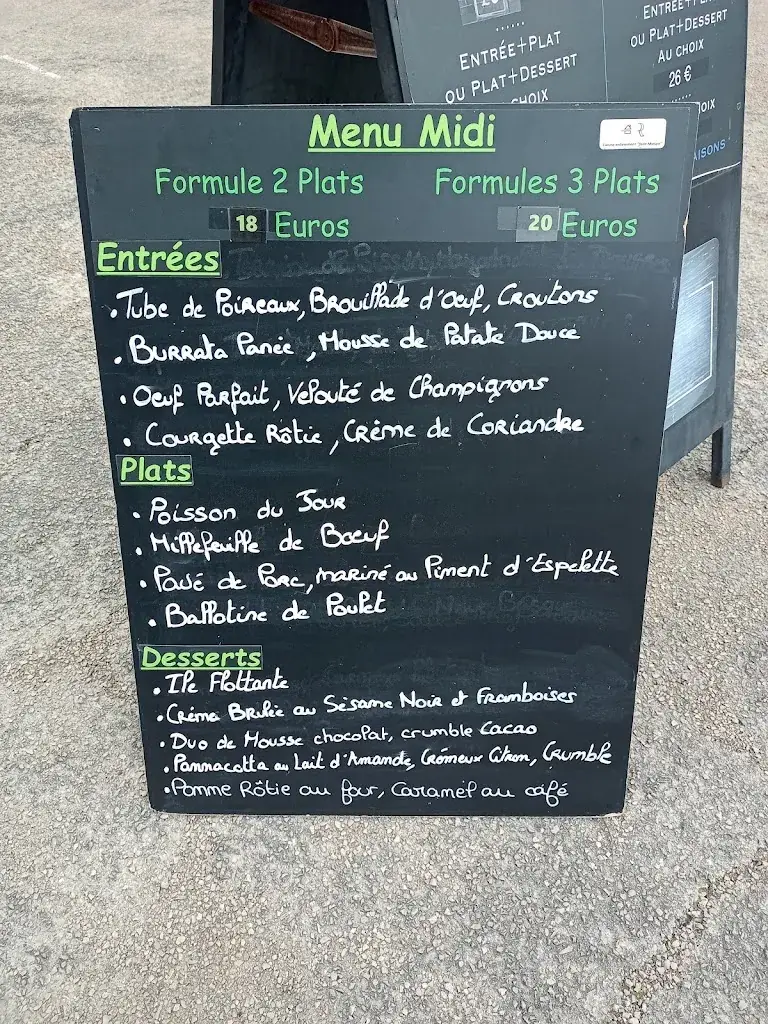 ENTRÉE+PLAT
OU PLAT+DESSERT
CHOIX
ENTRÉE+PLAT
OU PLAT+DESSERT
AU CHOIX
26 €
OIX
AISONS
Menu Midi
Formule 2 Plats
Formules 3 Plats
18 Euros
20 Euros
Entrées
• Tube de Poireaux, Brouillade d'oeuf, Croutons
• Burrata Panée, Mousse de Patate Douce
• Oeuf Parfait, Velouté de Champignons
• Courgette Rôtie, Crème de Coriandre
Plats
• Poisson du Jour
• Millefeuille de Boeuf
• Pavé de Porc, mariné au Piment d'Espelette
• Ballotine de Poulet
Desserts
• Ile Flottante
• Crème Brulée au Sésame Noir et Framboises
• Duo de Mousse chocolat, crumble Cacao
• Pannacotta au Lait d'Amande, Crémeux Citron, Crumble
• Pomme Rôtie au four, Caramel au café